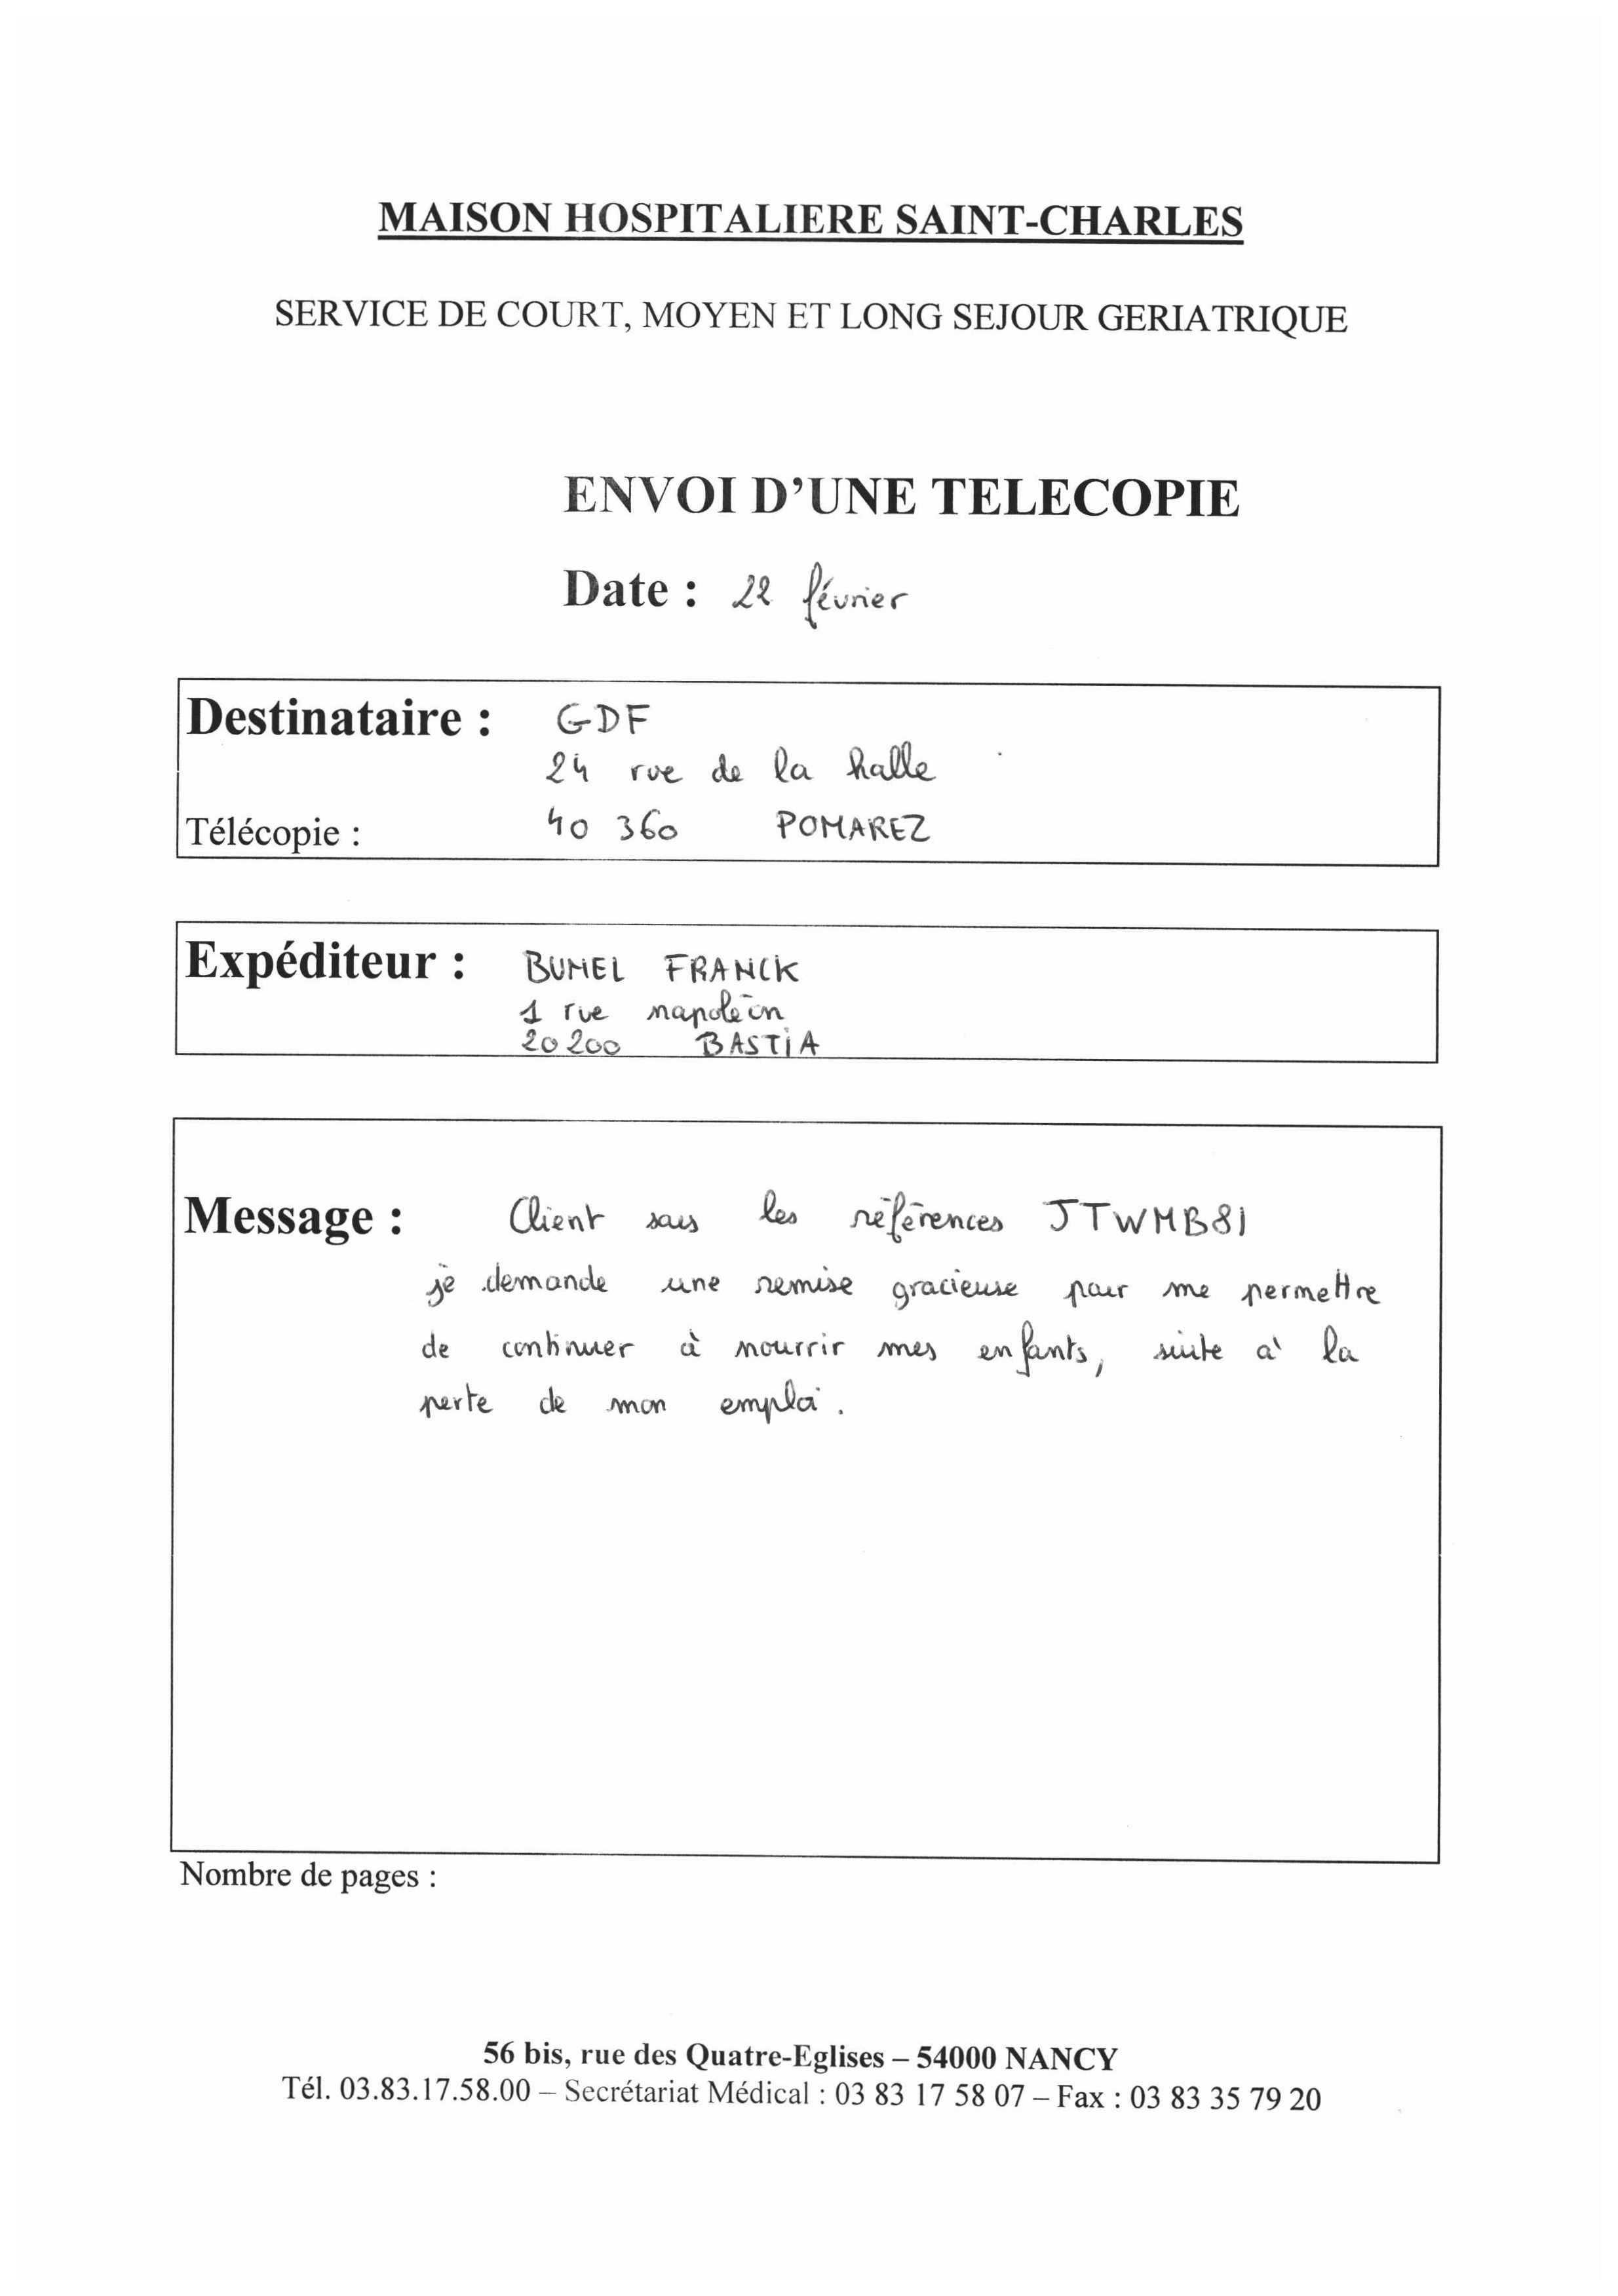 MAISON HOSPITALIERE SAINT-CHARLES
SERVICE DE COURT, MOYEN ET LONG SEJOUR GERIATRIQUE
ENVOI D'UNE TELECOPIE
Date : 22 février
Destinataire : GDF
24 rue de la halle
Télécopie : 40 360 POMAREZ
Expéditeur : BUMEL FRANCK
1 rue napoléon
20200 BASTIA
Message : Client sous les références JTWMB81
je demande une remise gracieuse pour me permettre
de continuer à nourrir mes enfants, suite à la
perte de mon emploi.
Nombre de pages :
56 bis, rue des Quatre-Eglises – 54000 NANCY
Tél. 03.83.17.58.00 – Secrétariat Médical : 03 83 17 58 07 – Fax : 03 83 35 79 20